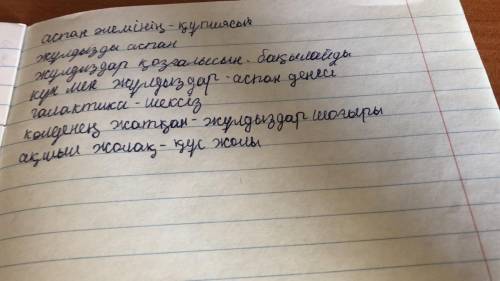 аспан әлемінің - құпиясы
жұлдызды аспан
жұлдыздар қозғалысын - бақылайды
күн мен жұлдыздар - аспан денесі
галактика - шексіз
көлденең жатқан - жұлдыздар шоғыры
ақшыл жолақ - құс жолы